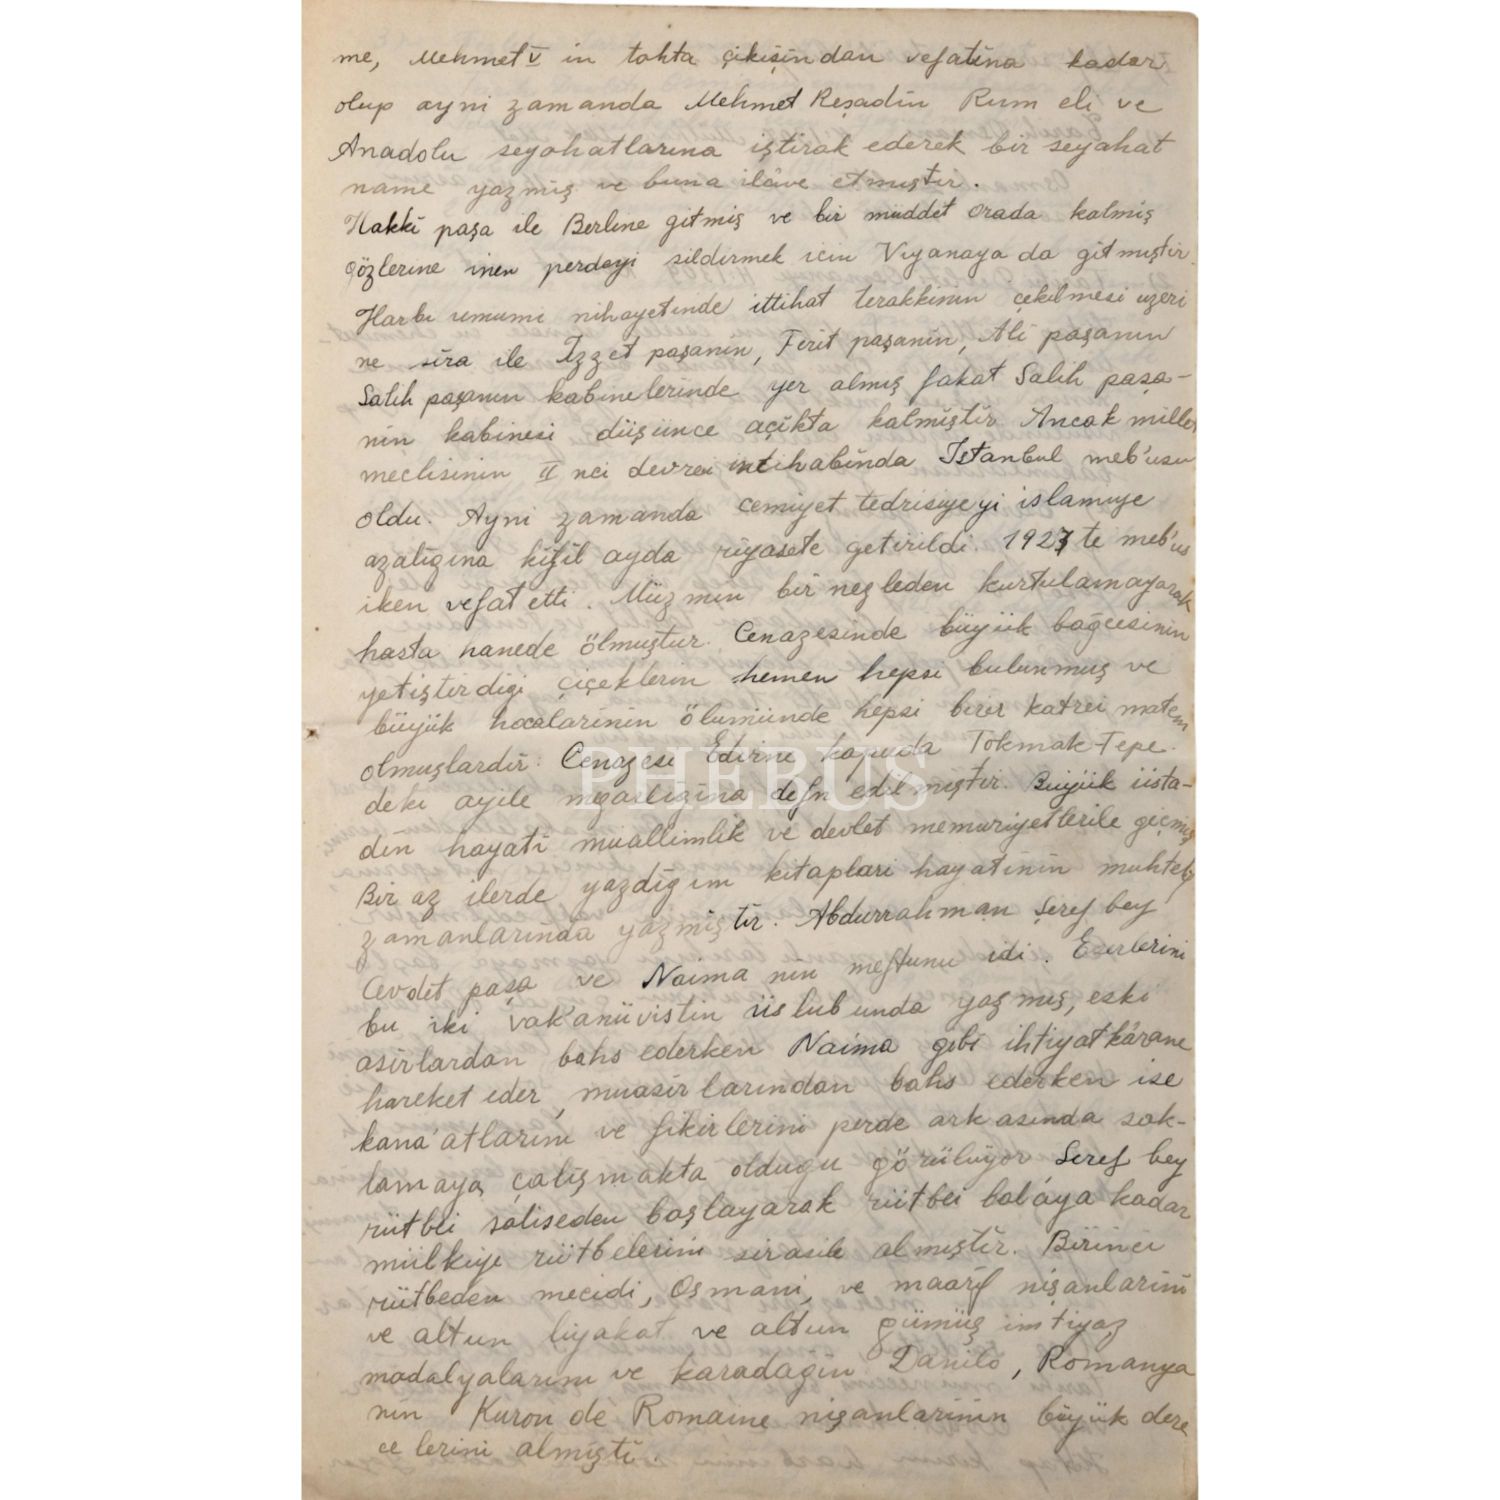 me, Mehmet V in tahta çikişin dan vefatina kadar
olup ayni zamanda Mehmet Reşadin Rum eli ve
Anadolu seyahatlarına iştirak ederek bir seyahat
name yazmiş ve buna ilâve etmuştır.
Hakki paşa ile Berline gitmiş ve bir müddet orada kalmiş
gözlerine inen perdeyi sildirmek icin Vıyanaya da gitmıştir.
Harbı umumı nihayetınde ittihat terakkinin çekılmesi uzeri
ne sira ile Izzet paşanin, Ferit paşanin, Ali paşanın
Salih paşanın kabinelerinde yer almış fakat Salih paşa-
nin kabinesi düşünce açikta kalmiştir Ancak millet
meclisinin II nci devrei intihabinda Istanbul meb'usu
oldu. Ayni zamanda cemiyet tedrisiyeyi islamiye
azaligina kizil ayda riyasete getirildi. 1927 te meb'us
iken vefat etti. Müzmin bir nezleden kurtulamayarak
hasta hanede ölmuştur. Cenazesinde büyük bağcesinin
yetiştirdigi çiçeklerin hemen hepsi bulunmuş ve
büyük hocalarinin ölumünde hepsi birer katrei matem
olmuşlardir. Cenazesi Edirne kapuda Tokmak Tepe
deki ayile mezarligina defn edilmiştir. Büyük üsta-
din hayati muallimlik ve devlet memuriyetlerile geçmiş
Bir az ilerde yazdigım kitaplari hayatinin muhtelif
zamanlarında yazmiştir. Abdurrahman Şeref bey
Cevdet paşa ve Naima nin meftunu idi. Eserlerini
bu iki vak'anüvistin üslubunda yazmış, eski
asirlardan bahs ederken Naima gibi ihtiyatkârane
hareket eder, muasirlarından bahs ederken ise
kana'atlarını ve fikirlerini perde arkasında sak-
lamaya çalişmakta oldugu görülüyor Şeref bey
rütbei saliseden başlayarak rütbei balâya kadar
mülkiye rütbelerini sirasile almıştir. Birinci
rütbeden mecidi, Osmani, ve maarif nişanlarini
ve altun liyakat ve altun gümüş imtiyaz
madalyalarını ve karadağin Danilo, Romanya
nin Kuron de Romaine nişanlarinin büyük dere
ce lerini almişti.
PHEBUS